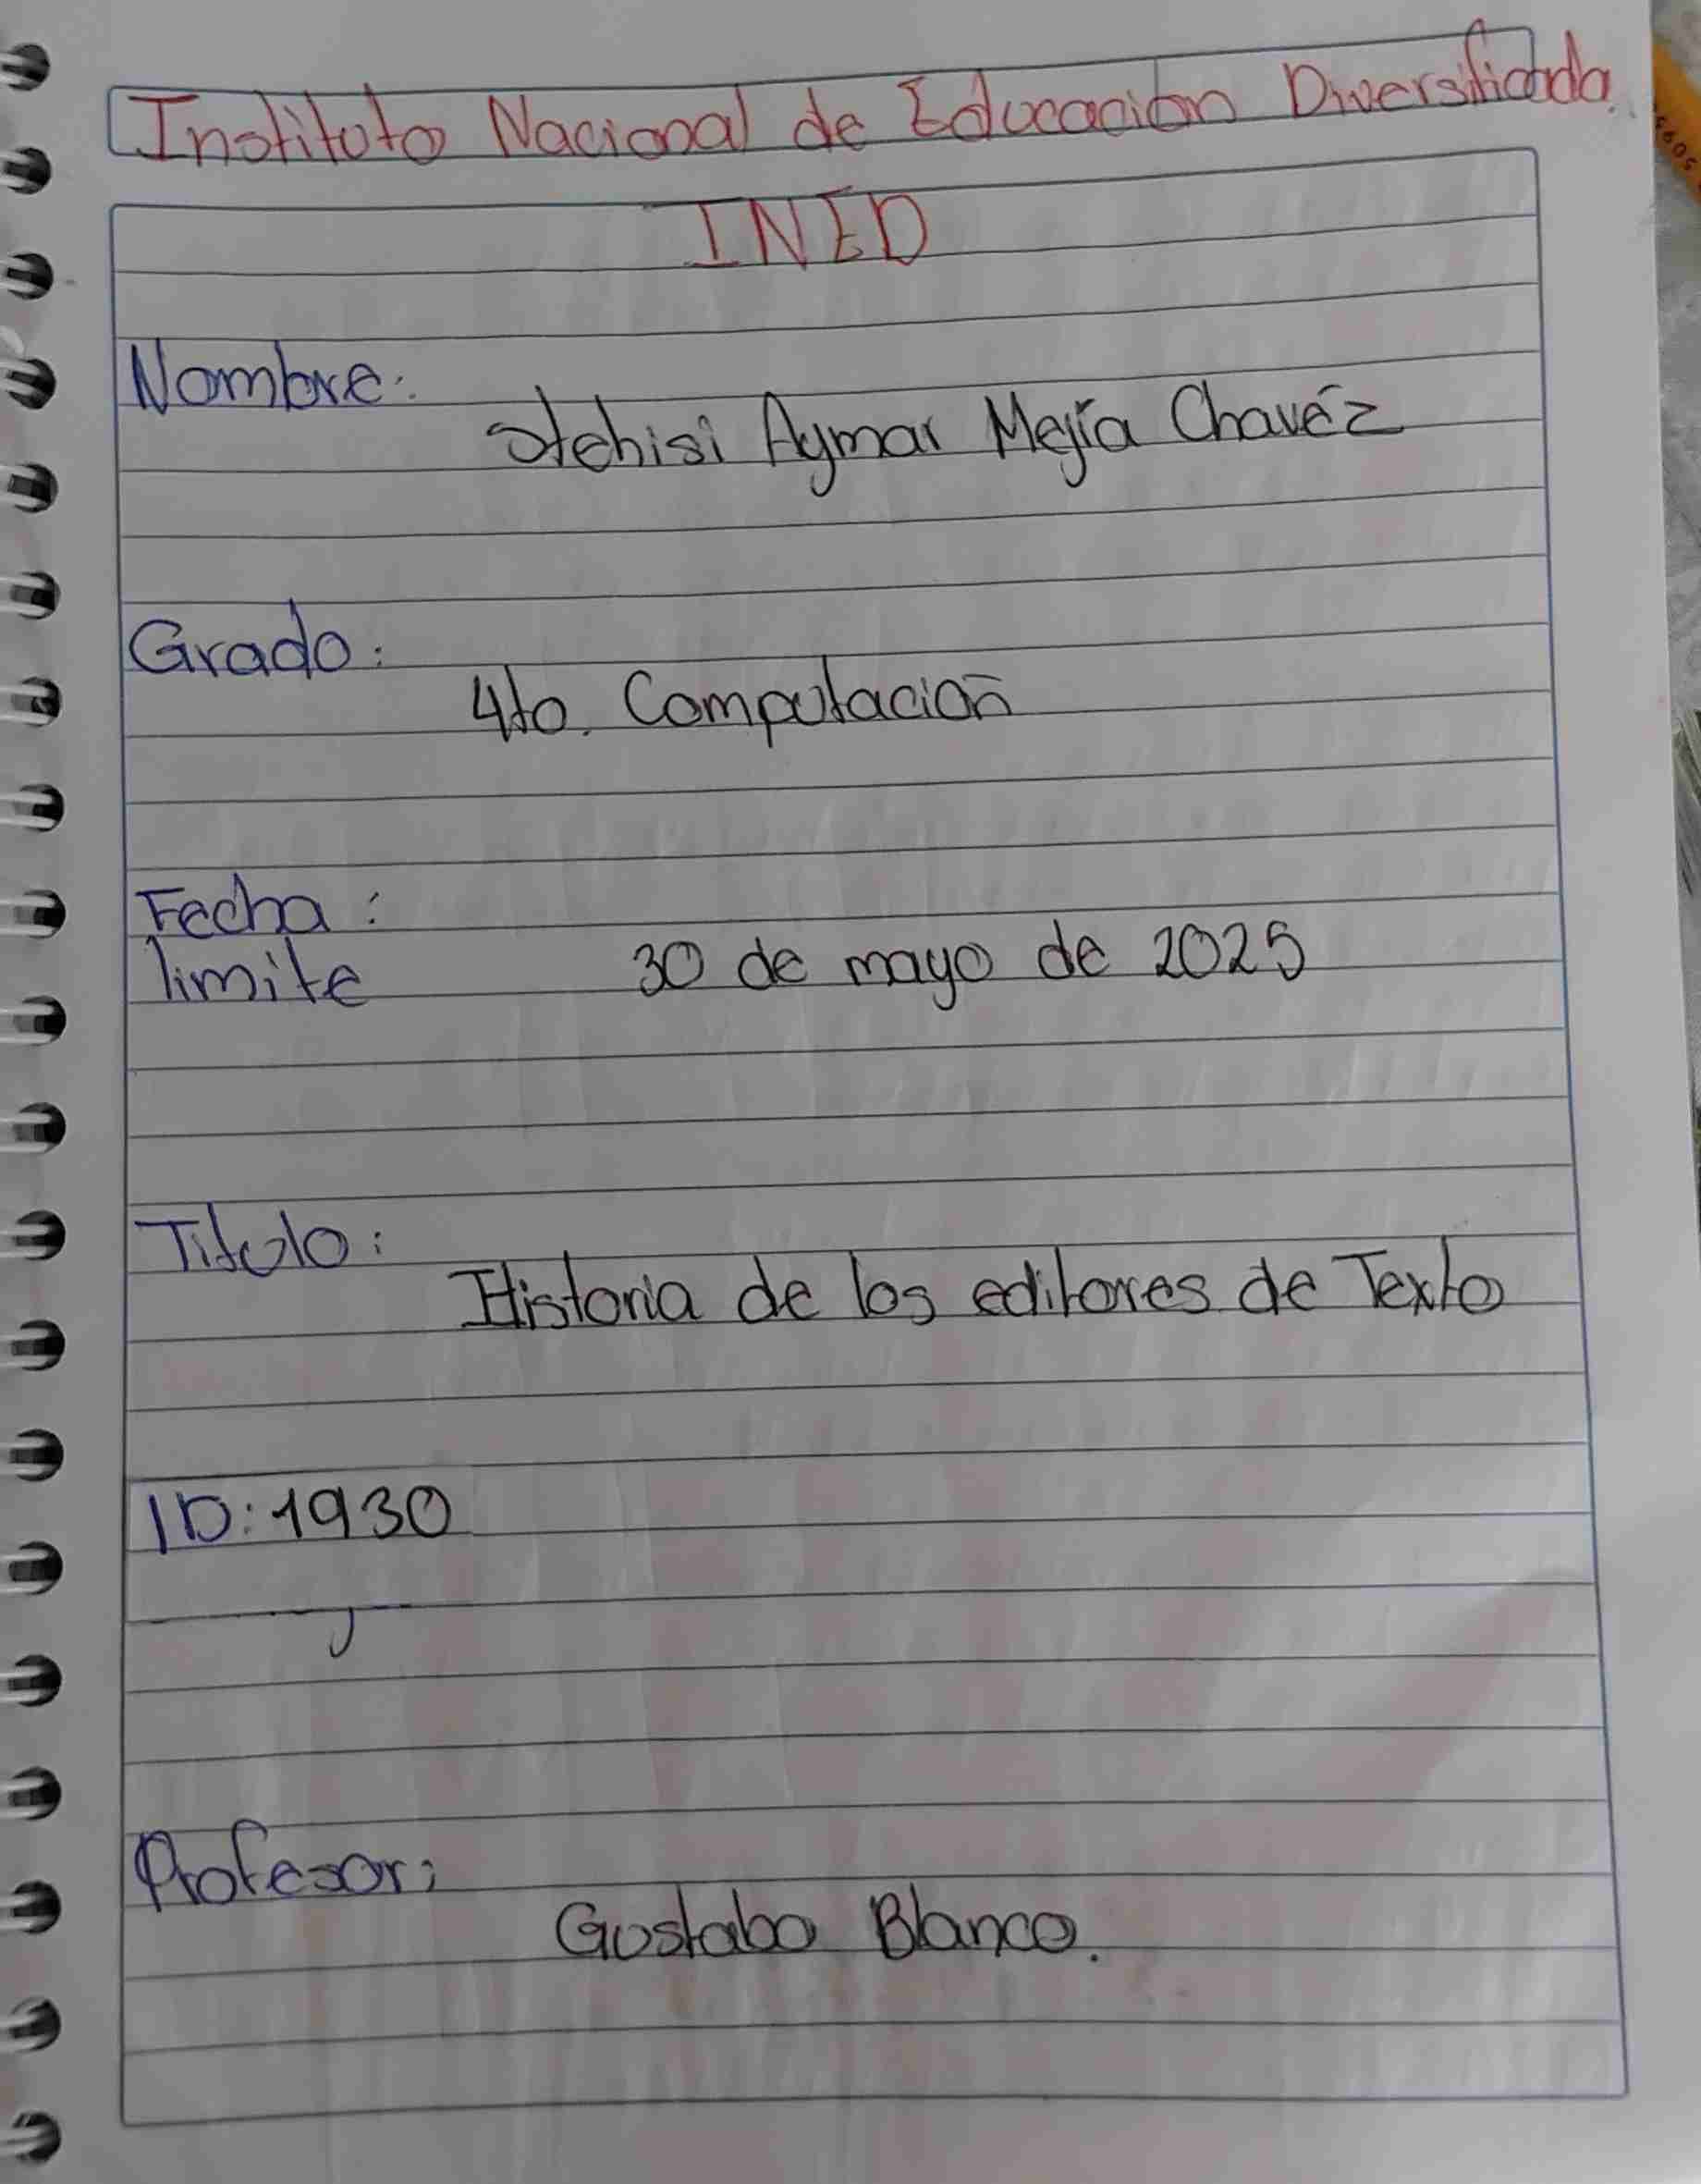 Instituto Nacional de Educación Diversificada
INED
Nombre:
Stchisi Aymar Mejía Chavéz
Grado:
4to. Computación
Fecha:
limite 30 de mayo de 2025
Titulo:
Historia de los editores de Texto
ID: 1930
Profesor:
Gustabo Blanco.